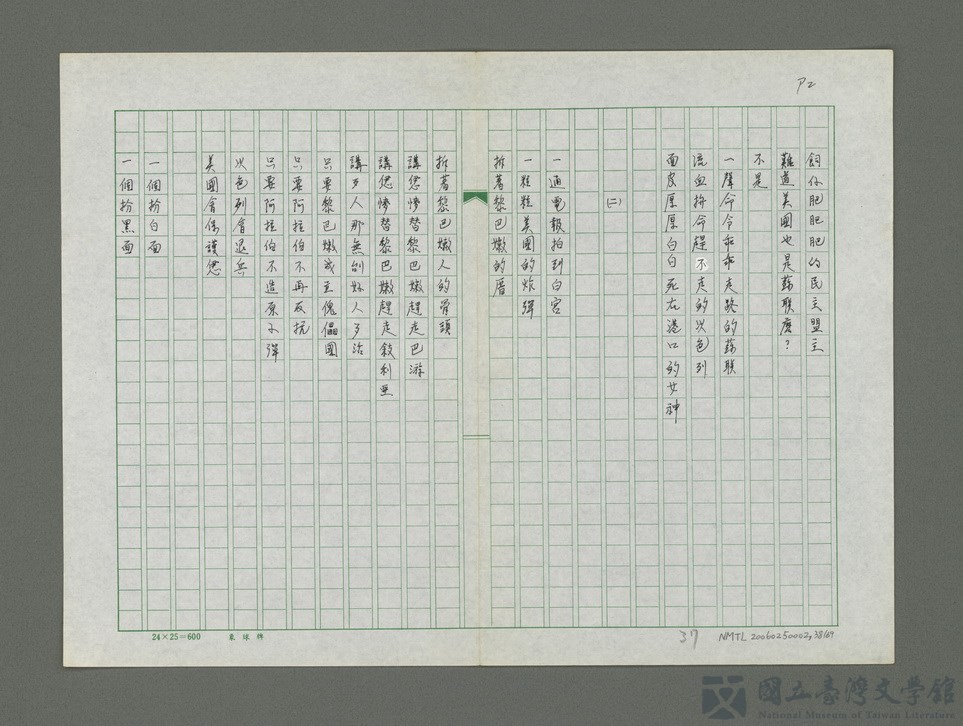 P2
飼仔肥肥肥的民主盟主
難道美國也是蘇聯麼?
不是
一聲命令乖乖走路的蘇聯
流血拚命趕不走的以色列
面皮厚厚白白死在港口的女神
(二)
一通電報拍到白宮
一粒粒美國的炸彈
拆著黎巴嫩的厝
拆著黎巴嫩人的骨頭
講您慘替黎巴嫩趕走巴游
講您慘替黎巴嫩趕走敘利亞
講歹人那無刣好人歹治
只要黎巴嫩成立傀儡國
只要阿拉伯不再反抗
只要阿拉伯不造原子彈
以色列會退兵
美國會保護您
一個扮白面
一個扮黑面
24×25=600
象球牌
37
NMTL 20060250002,38/69
國立臺灣文學館
National Museum of Taiwan Literature